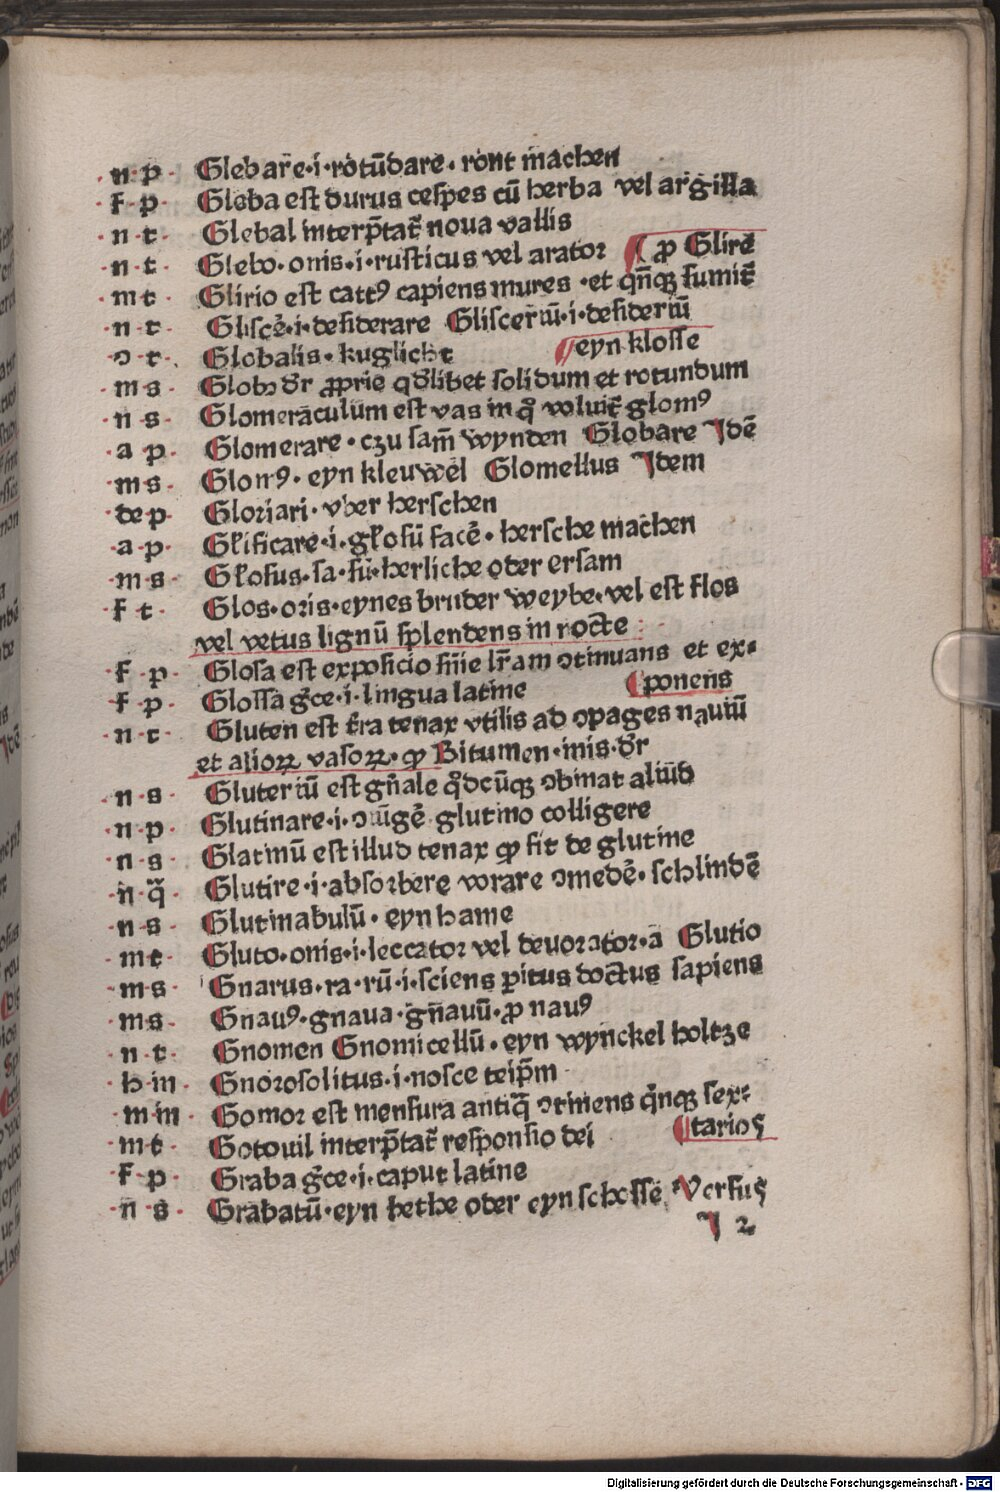 n p Glebare·i·rotūdare·ront machen
f p Gleba est durus cespes cū herba vel argilla
n t Glebal interp̄tat̄ noua vallis
n t Glebo·onis·i·rusticus vel arator ¶ ꝓ Glirē
m t Glirio est cattꝰ capiens mures·et qn̄qꝫ sumit̄
n t Gliscē·i·desiderare Gliscerīū·i·desideriū
ꝯ t Globalis·kuglicht ¶ eyn klosse
m s Globꝰ dr̄ ꝓprie qd̄libet solidum et rotundum
n s Glomeraculum est vas in qͦ voluit̄ glomꝰ
a p Glomerare·czu sam̄ wynden Globare Idē
m s Glomꝰ·eyn kleuwel Glomellus Idem
de p Gloriari·vber herschen
a p Gl̄ificare·i·gl̄osū facē·hersche machen
m s Gl̄osus·sa·sū·herliche oder ersam
f t Glos·oris·eynes bruder weybe·vel est flos
vel vetus lignū splendens in nocte
f p Glosa est exposicio sn̄ie lr̄am ꝯtinuans et ex⸗
f p Glossa gͣce·i·lingua latine ¶ ponens
n t Gluten est t̄ra tenax vtilis ad ꝯpages nauiū
et alioꝝ vasoꝝ·ꝙ Bitumen·inis·dr̄
n s Gluteriū est gn̄ale qͦdcūqꝫ ꝯbinat aliud
n p Glutinare·i·ꝯiūgē glutino colligere
n s Glatinū est illud tenax ꝙ fit de glutine
n q̄ Glutire·i·absorbere vorare ꝯmedē·schlindē
n s Glutinabulū·eyn hame
m t Gluto·onis·i·leccator vel deuorator·a Glutio
m s Gnarus·ra·rū·i·sciens ꝑitus doctus sapiens
m s Gnauꝰ·gnaua·gnauū·ꝓ nauꝰ
n t Gnomen Gnomicellū·eyn wynckel holtze
h m Gnorosolitus·i·nosce teip̄m
m m Gomor est mensura antiq̄ ꝯtinens qͥnqꝫ sex⸗
m t Gotouil interp̄tat̄ responsio dei ¶ tarios
f p Graba gͣce·i·caput latine
n s Grabatū·eyn bethe oder eyn schosse Versus
I 2
Digitalisierung gefördert durch die Deutsche Forschungsgemeinschaft · DFG